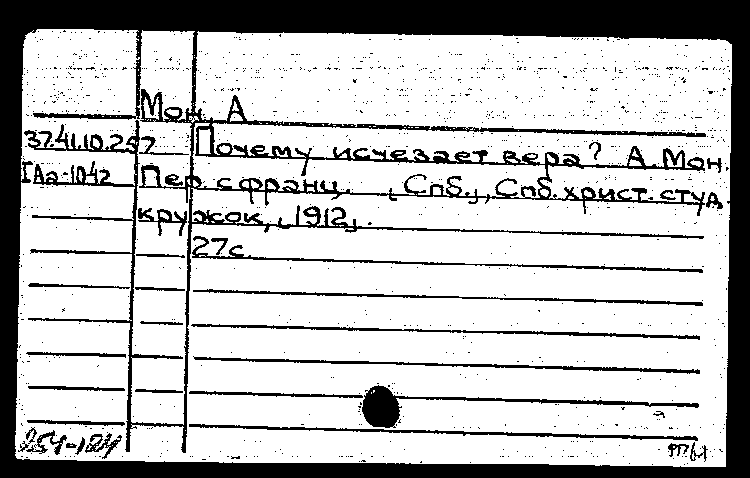 Мон, А
37.41.10.257 Почему исчезает вера? А. Мон.
IАа-1042 Пер. с франц. [Спб.], Спб. христ. студ.
кружок, [1912].
27с.
254-124